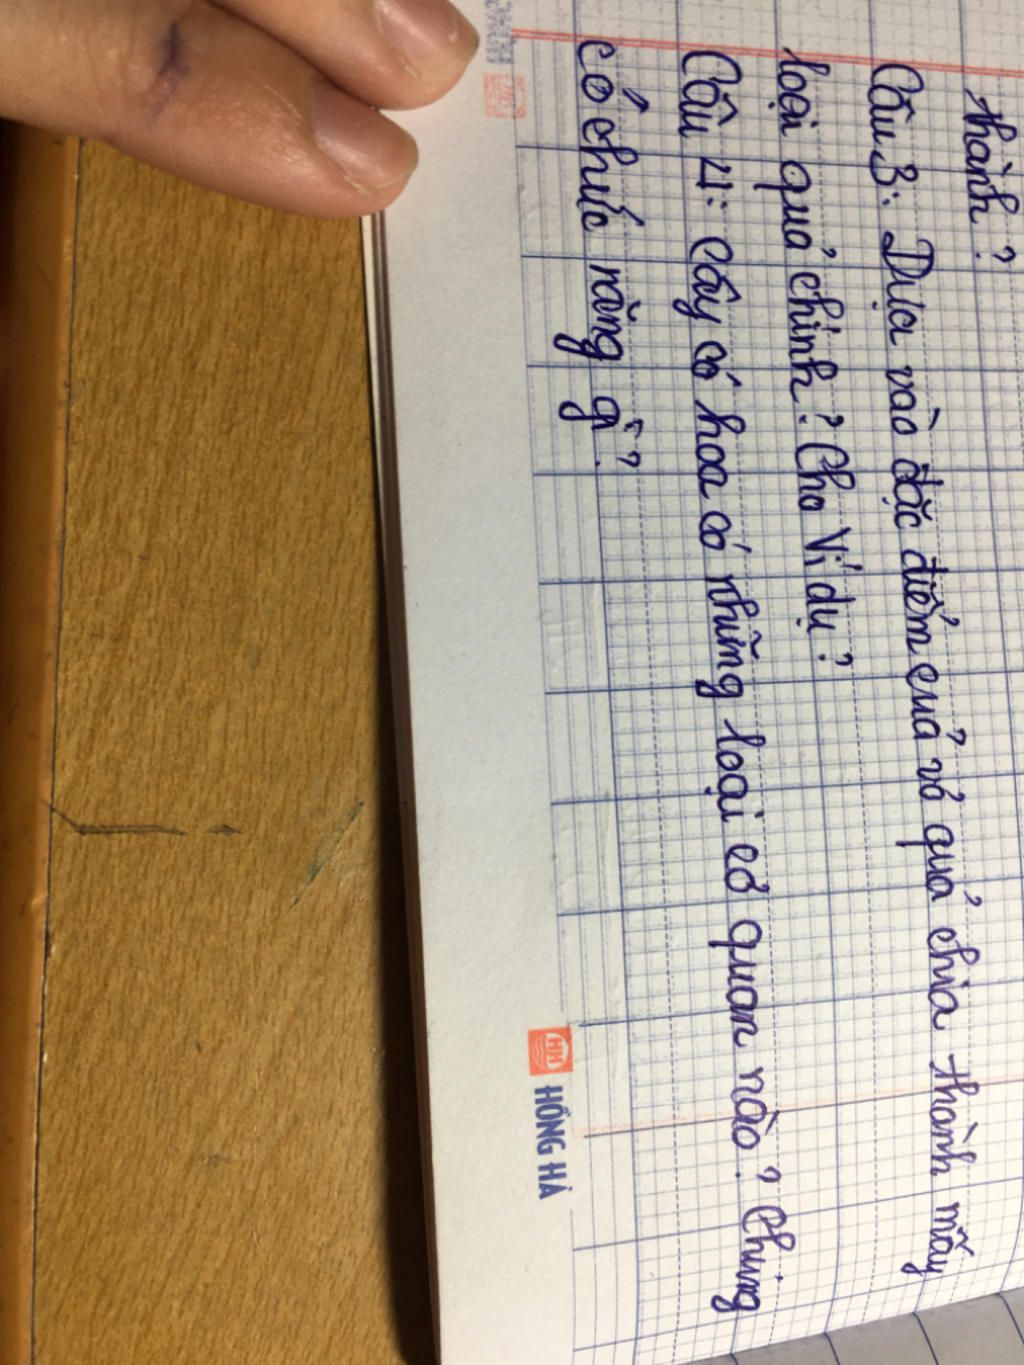 thành?
Câu 3: Dựa vào đặc điểm của vỏ quả chia thành mấy
loại quả chính? Cho Ví dụ?
Câu 4: Cây có hoa có những loại cơ quan nào? Chúng
có chức năng gì?
HỒNG HÀ